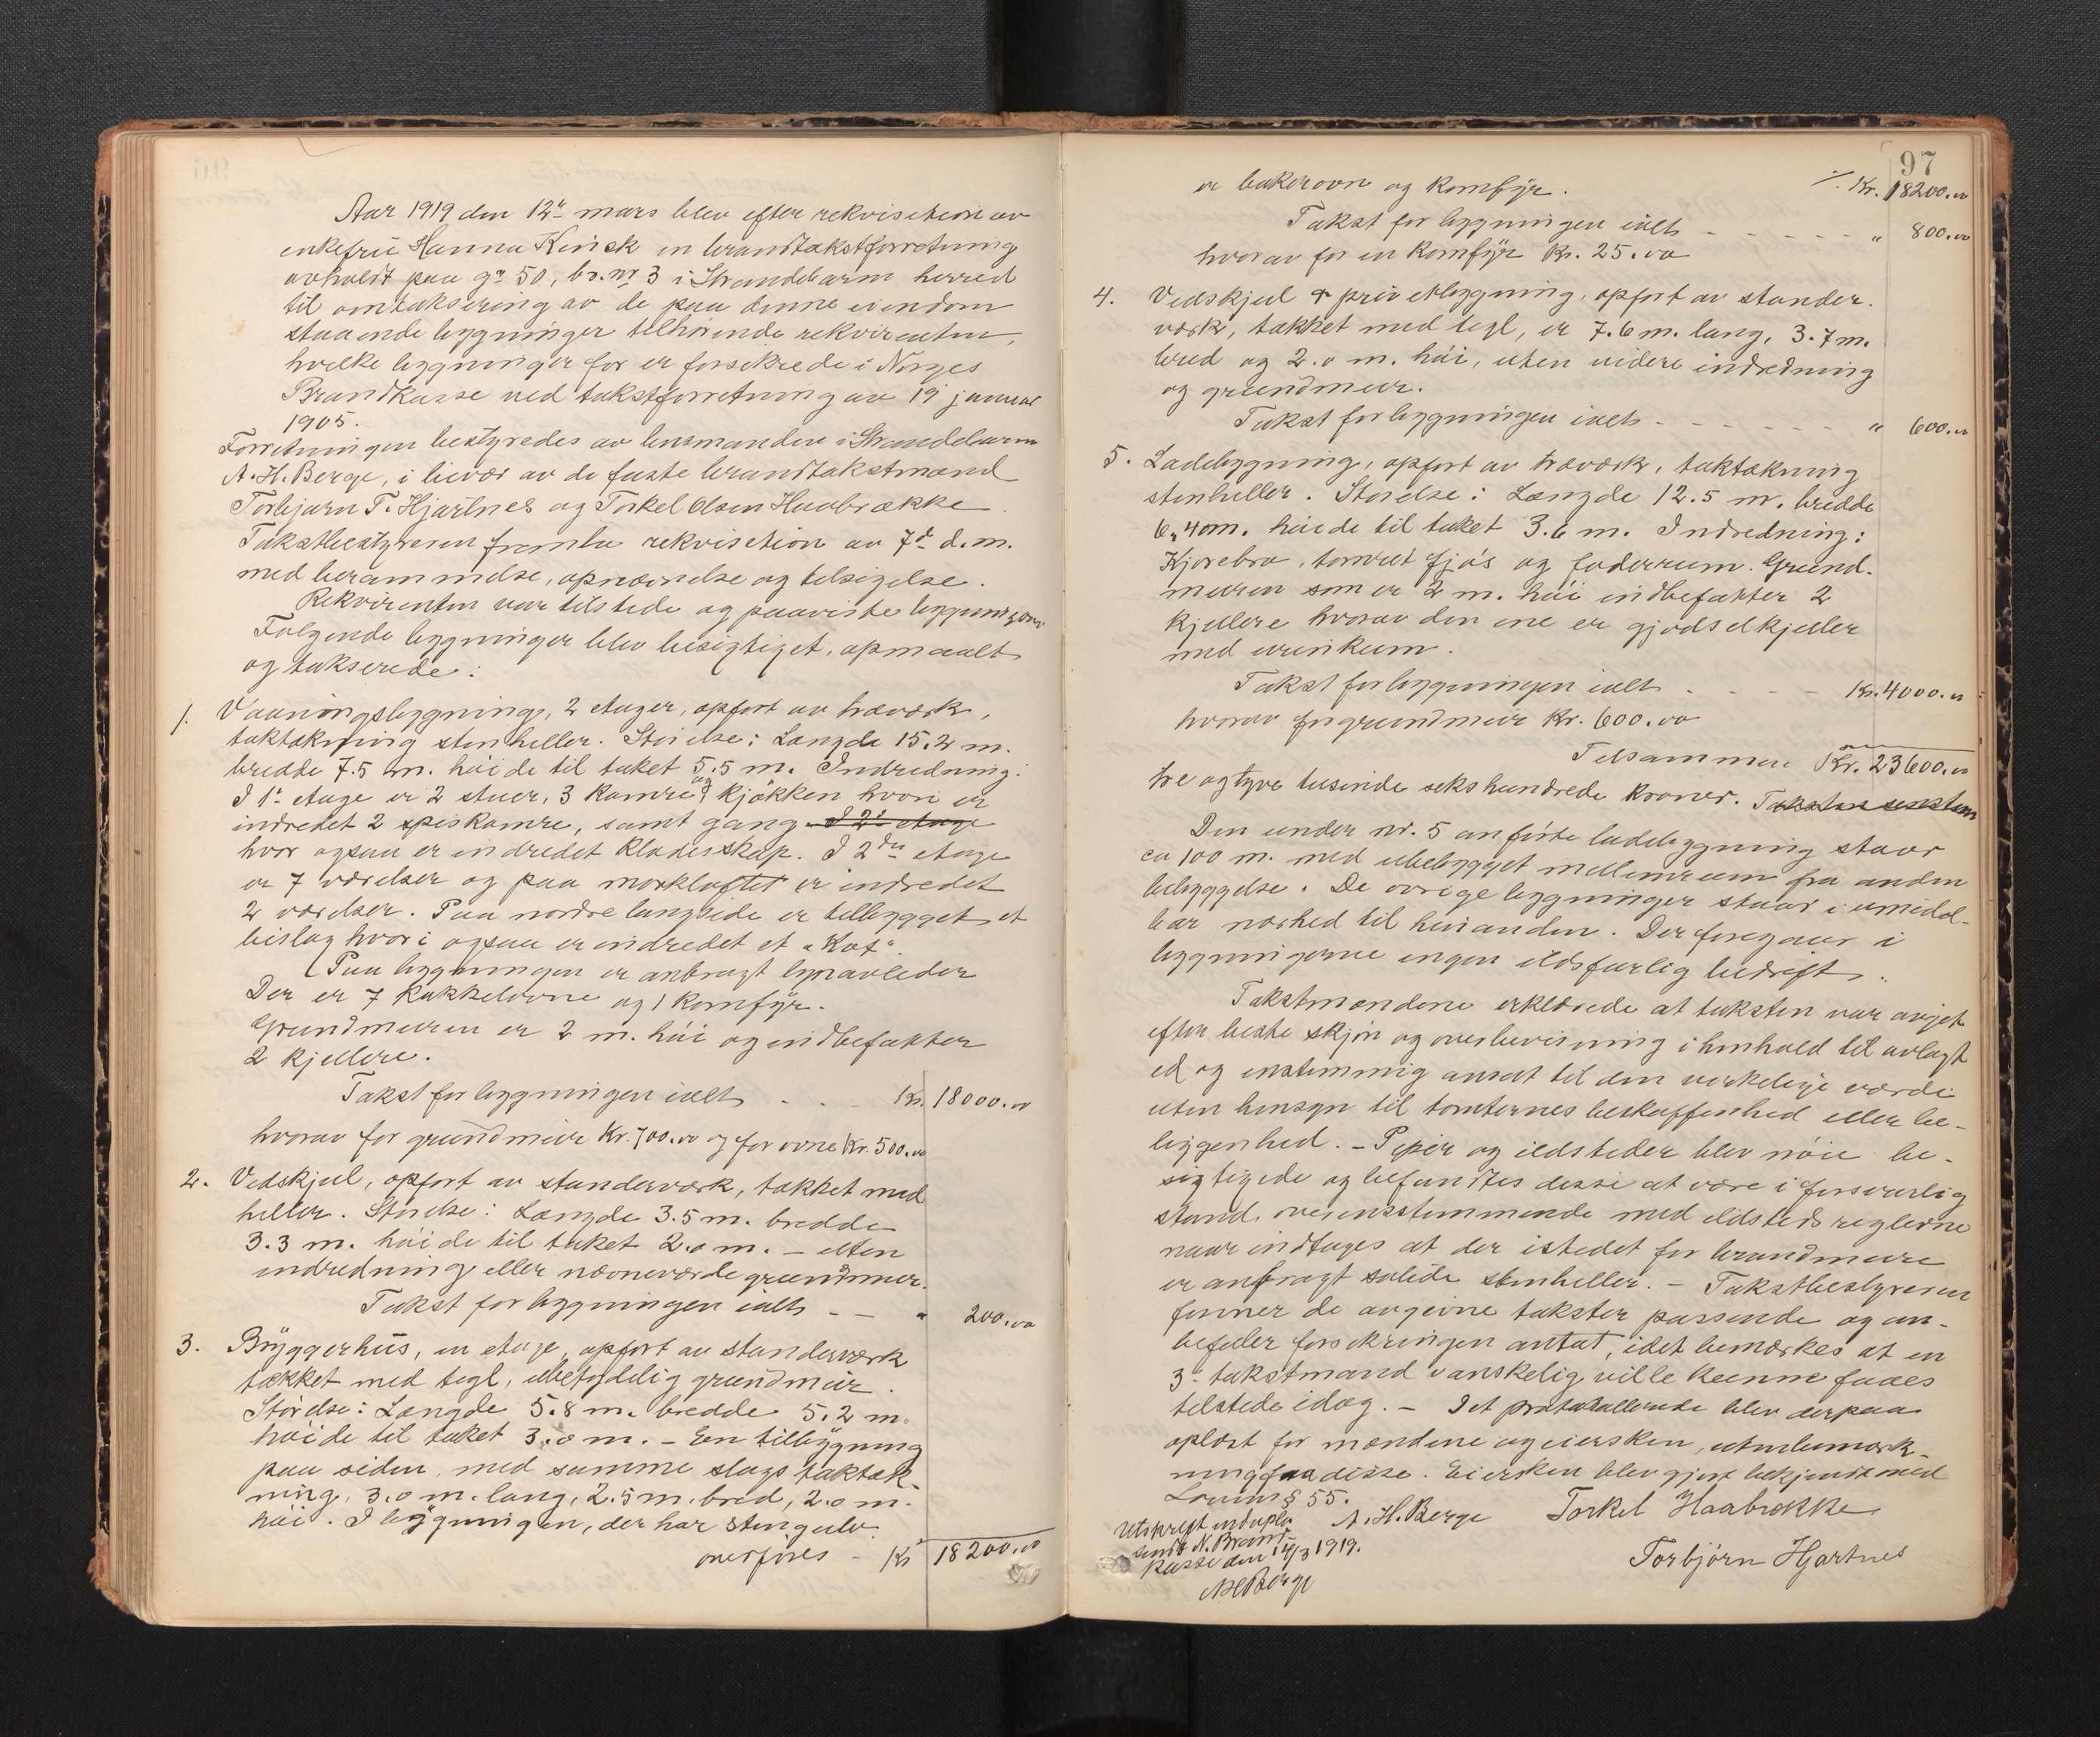 Aar 1919 den 12te mars blev efter rekvisition av
enkefru Hanna Kinck en brandtakstforretning
avholdt paa gr. 50, br. nr 3 i Strandebarm herred
til omtaksering av de paa denne eiendom
staaende bygninger tilhørende rekvirenten,
hvilke bygninger før er forsikrede i Norges
Brandkasse ved takstforretning av 19 januar
1905.
Forretningen bestyredes av lensmanden i Strandebarm
A. H. Berge, i bivær av de faste brandtakstmænd
Torbjørn T. Hjartnes og Torkel Olsen Haabrække.
Takstbestyreren fremla rekvisition av 7de d. m.
med berammelse, opnævnelse og tilsigelse.
Rekvirenten var tilstede og paaviste bygningerne
Følgende bygninger blev besigtiget, opmaalt
og takserede:
1. Vaaningsbygning, 2 etager, opført av træværk,
taktækning stenheller. Størelse: Længde 15.2 m.
bredde 7.5 m. høide til taket 5.5 m. Indredning:
I 1e etage er 2 stuer, 3 kamre og kjøkken hvori er
indredet 2 spiskamre, samt gang I 2den etage
hvor ogsaa er indredet klædesskap. I 2den etage
er 7 værelser og paa mørkloftet er indredet
2 værelser. Paa nordre langside er tilbygget et
bislag hvori ogsaa er indredet et "Kot".
Paa bygningen er anbragt lynavleder
Der er 7 kakkelovne og 1 komfyr.
Grundmuren er 2 m. høi og indbefatter
2 kjellere.
Takst for bygningen ialt . . . Kr. 18000.00
hvorav for grundmur Kr. 700.00 og for ovne Kr. 500.00
2. Vedskjul, opført av standerværk, tækket med
heller. Størelse: Længde 3.5 m. bredde
3.3 m. høide til taket 2.0 m. – uten
indredning eller nævneværdi grundmur.
Takst for bygningen ialt – – " 200.00
3. Bryggerhus, en etage, opført av standerværk
tækket med tegl, ubetydelig grundmur.
Størelse: Længde 5.8 m. bredde 5.2 m.
høide til taket 3.0 m. – En tilbygning
paa siden, med samme slags taktæk-
ning, 3.0 m. lang, 2.5 m. bred, 2.0 m.
høi. I bygningen, der har stengulv
overføres – Kr 18200.00
97
er bakerovn og komfyr. ./. Kr. 18200.00
Takst for bygningen ialt - - - - - " 800.00
hvorav for en komfyr Kr. 25.00
4. Vedskjul & privetbygning, opført av stander-
værk, tækket med tegl, er 7.6 m. lang, 3.7 m.
bred og 2.0 m. høi, uten videre indredning
og grundmur.
Takst for bygningen ialt - - - - - " 600.00
5. Ladebygning, opført av træværk, taktækning
stenheller. Størelse: Længde 12.5 m. bredde
6.40 m. høide til taket 3.6 m. Indredning:
Kjørebro, tømret fjøs og foderrum. Grund-
muren som er 2 m. høi indbefatter 2
kjellere hvorav den ene er gjødselkjeller
med urinkum.
Takst for bygningen ialt . - - - Kr. 4000.00
hvorav for grundmur Kr. 600.00
Tilsammen Kr. 23600.00
tre og tyve tusinde sekshundrede kroner. Taksten
Den under nr. 5 anførte ladebygning staar
ca 100 m. med ubebygget mellemrum fra anden
bebyggelse. De øvrige bygninger staar i umiddel-
bar nærhed til hinanden. Der foregaar i
bygningerne ingen ildsfarlig bedrift.
Takstmændene erklærede at taksten var avgjet
efter beste skjøn og overbevisning i henhold til avlagt
ed og enstemmig ansat til den virkelige værdi
uten hensyn til tomternes beskaffenhed eller be-
liggenhed. – Piper og ildsteder blev nøie be-
sigtigede og befandtes disse at være i forsvarlig
stand, overensstemmende med ildstedsreglerne
naar undtages at der istedet for brandmure
er anbragt solide stenheller. – Takstbestyreren
finner de avgivne takster passende og an-
befaler forsikringen antat, idet bemærkes at en
3e takstmand vanskelig ville kunne faaes
tilstede idag. – Det protokollerede blev derpaa
oplæst for mændene og eiersken, uten bemærk-
ning fra disse. Eiersken blev gjort bekjendt med
Lovens § 55.
A. H. Berge Torkel Haabrække
Torbjørn Hjartnes
Utskrift in duplo
sendt N. Brand-
kasse den 14/3 1919.
AHBerge